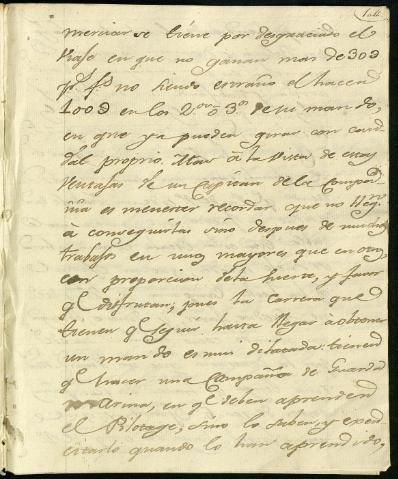 104
merciar se tiene por desgraciado el
Viaje en que no ganan mas de 30
ps. fs. no siendo estraño el hacerd
100 en los 2.os o 3.os de su mando,
en que ya pueden girar con cau-
dal proprio. Mas à la vista de estas
Ventajas de un Capitan de la Compa-
ñia es menester recordar que no llegn.
à conseguirlas sino despues de muchos
trabajos en unos mayores que en otros
con proporcion dela suerte, y favor
qe. disfrutan; pues la carrera que
tienen qe. seguir hasta llegar à obtener
un mando es mui dilatada: tienend
qe. hacer una Campaña de Guardia
Marina, en qe. deben aprenderd
el Pilotage, sino lo saben, y
quando lo han aprendido,